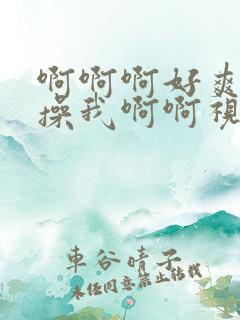 啊啊啊好爽
操我啊啊視
車谷晴子
未經同意禁止轉載